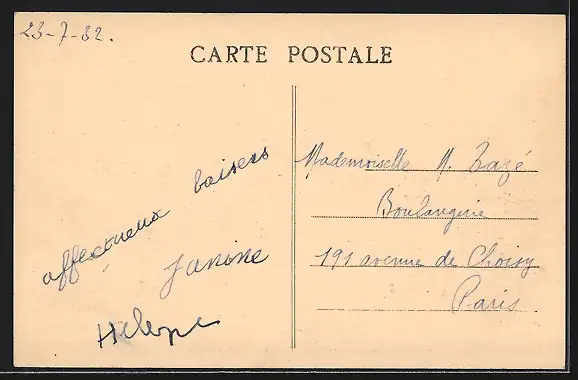 23-7-32.
CARTE POSTALE
affectueux baisers
Janine
Hélène
Mademoiselle M. Bazé
Boulangerie
191 avenue de Choisy
Paris